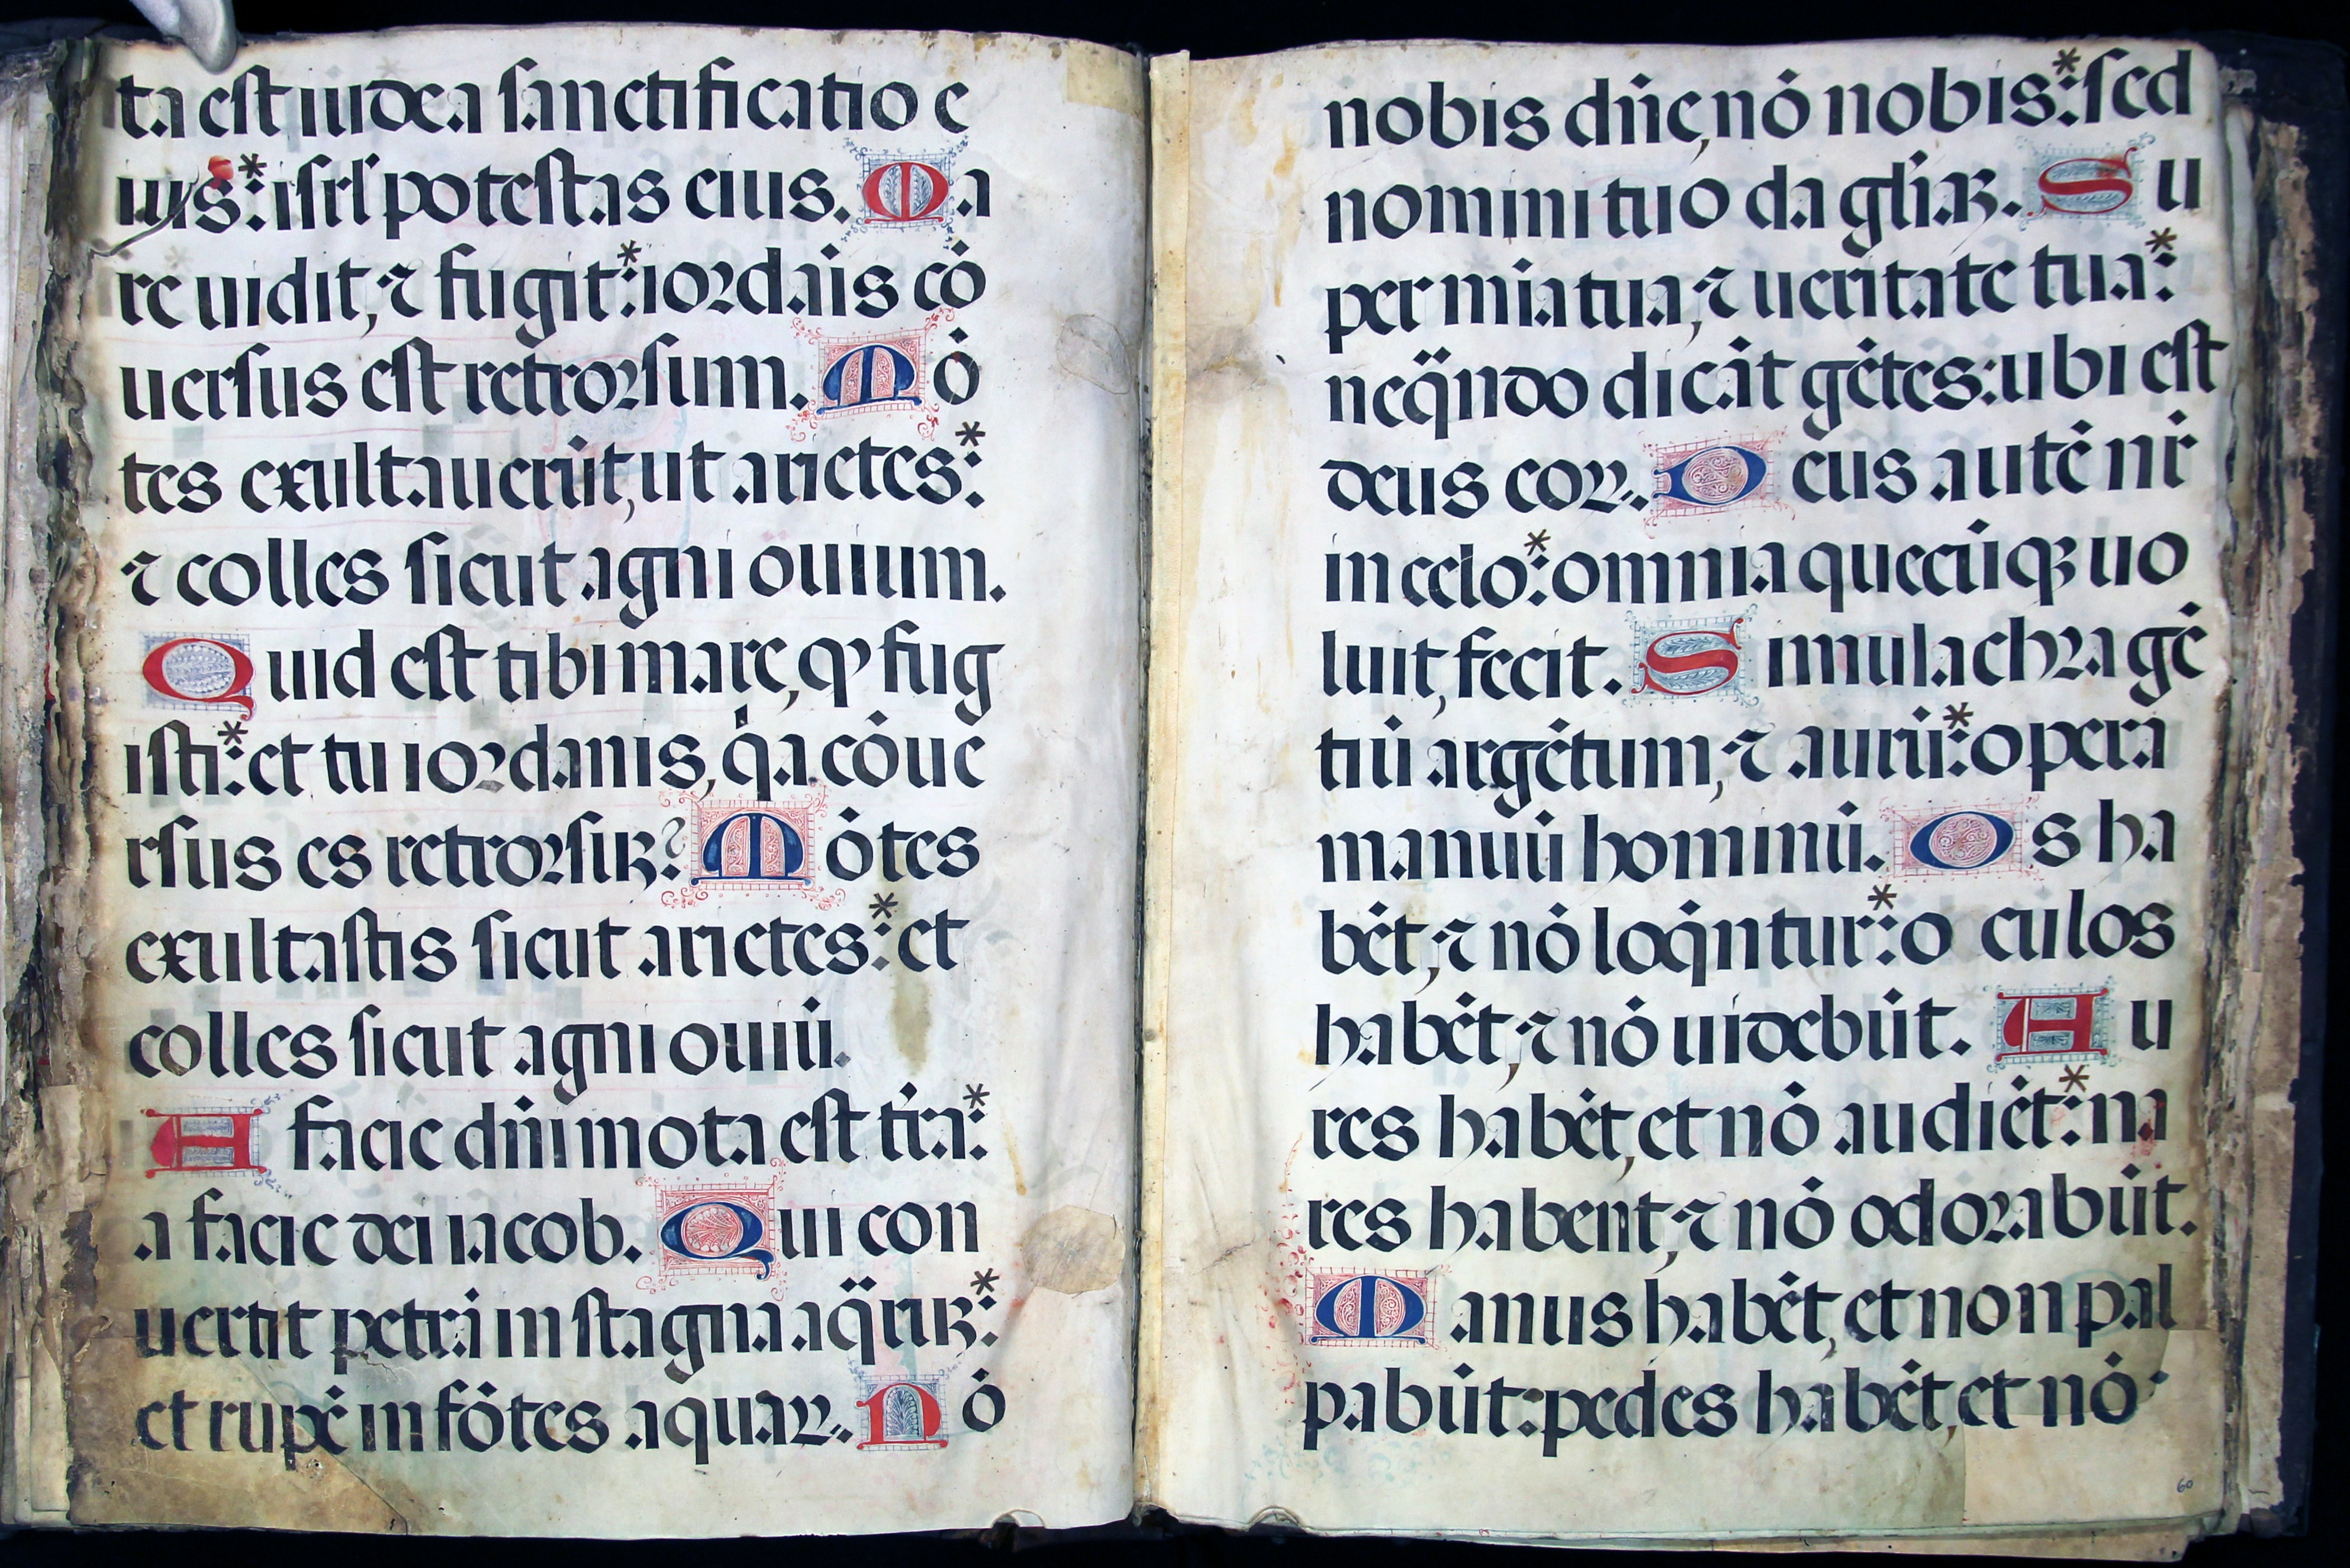 ta est iudea sanctificatio e
ius:* isrl potestas eius. Ma
re uidit, ⁊ fugit:* iordãis cõ
uersus est retrorsum. Mõ
tes exultauerũt, ut arietes:*
⁊ colles sicut agni ouium.
Quid est tibi mare, qꝰ fug
isti:* et tu iordanis, qͥa cõue
rsus es retrorsuꝫ? Mõtes
exultastis sicut arietes:* et
colles sicut agni ouiũ.
A facie dñi mota est tr̃a:*
a facie dei iacob. Qui con
uertit petrã in stagna aq̃ruꝫ:*
et rupẽ in fõtes aquaꝝ. Nõ
nobis dñe, nõ nobis:* sed
nomini tuo da gl̃iaꝫ. Su
per mĩa tua, ⁊ ueritate tua:*
neq̃ndo dicãt gẽtes: ubi est
deus eoꝝ. Deus autẽ nr̃
in celo:* omnia quecũqꝫ uo
luit, fecit. Simulachra gẽ
tiũ argẽtum, ⁊ aurũ:* opera
manuũ hominũ. Os ha
bẽt, ⁊ nõ loq̃ntur:* oculos
habẽt, ⁊ nõ uidebũt. Au
res habẽt, et nõ audiẽt:* na
res habent, ⁊ nõ odorabũt.
Manus habẽt, et non pal
pabũt: pedes habẽt, et nõ
60